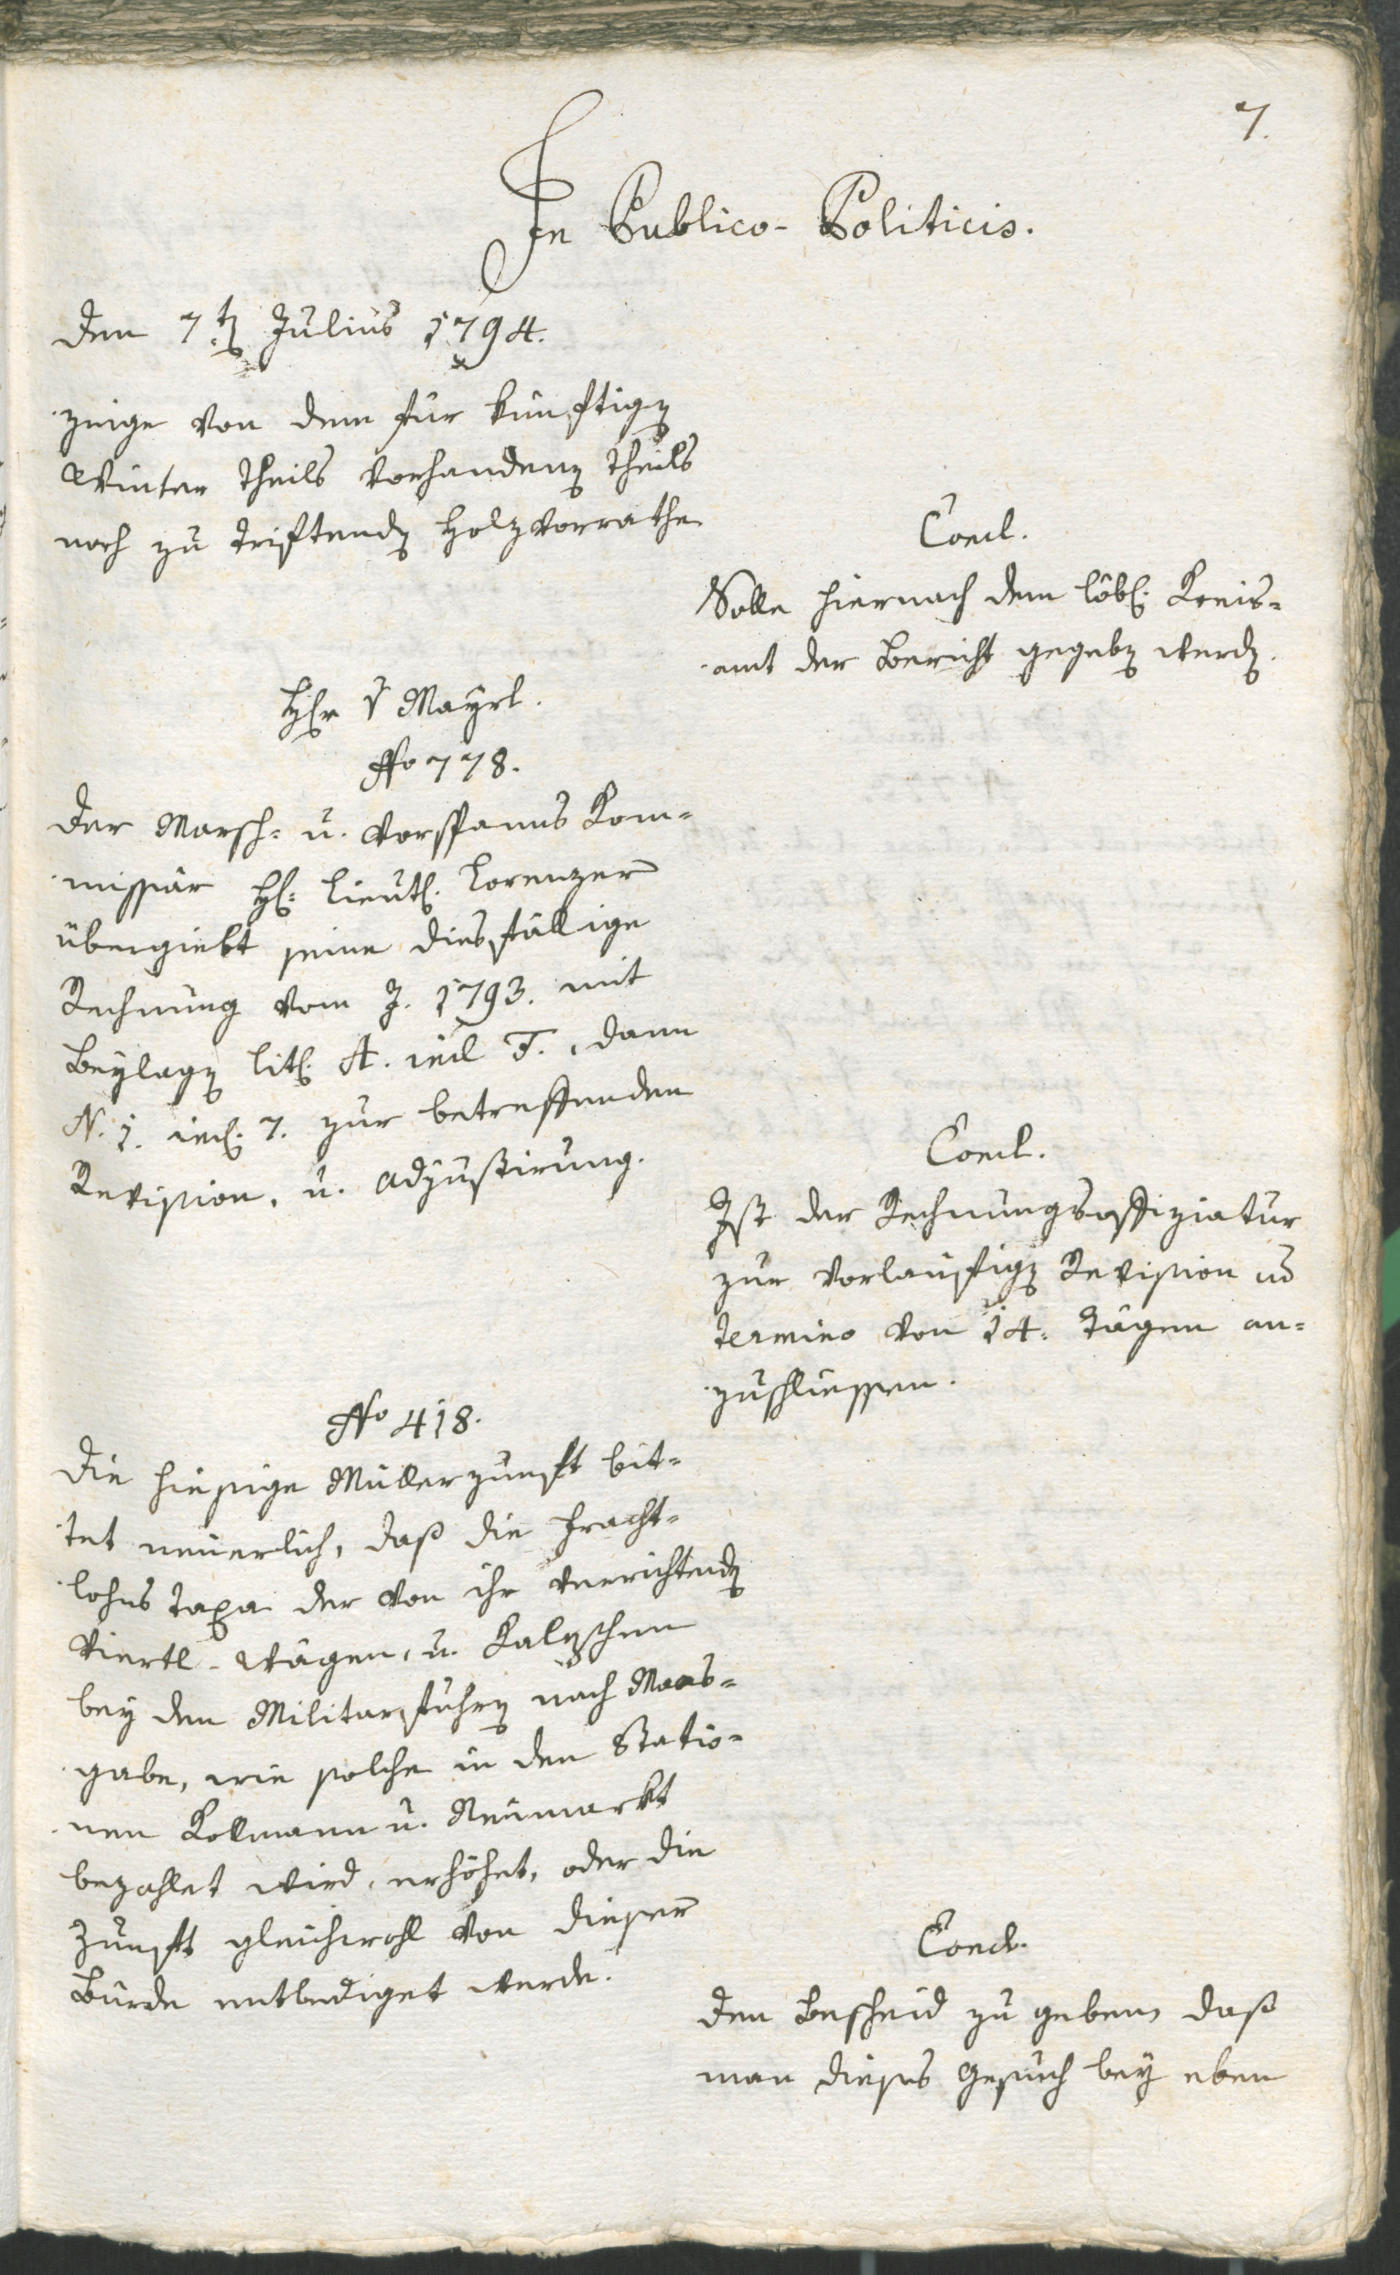 7.
In Publico-Politicis.
Den 7.ten Julius 1794.
zeige von dem für künftigen
Winter theils vorhandenen theils
noch zu triftenden Holzvorrathe
Concl.
Solle hiernach dem löbl. Kreis=
amt der Bericht gegeben werden.
Herr v Mayrl.
No 778.
Der Marsch= u. Vorspanns Kom=
missär H: Lieut. Lorenzer
übergiebt seine diesfällige
Rechnung vom J. 1793. mit
Beylagen lit. A. incl F., dann
N. 1. incl. 7. zur betreffenden
Revision, u. Adjustirung.
Concl.
Ist der Rechnungsoffiziatur
zur vorläufigen Revision in
termino von 14. Tägen an=
zuschliessen.
No 418.
Die hiesige Müllerzunft bit=
tet neuerlich, daß die Fracht=
lohns taxa der von ihr verrichtenden
Viertl-Wägen, u. Kaleschen
bey den Militarfuhren nach Maas=
gabe, wie solche in den Statio=
nen Kollmann u. Neumarkt
bezahlet wird, erhöhet, oder die
Zunft gleichwohl von dieser
Bürde entlediget werde.
Concl.
Den Bescheid zu geben, daß
man dieses Gesuch bey eben